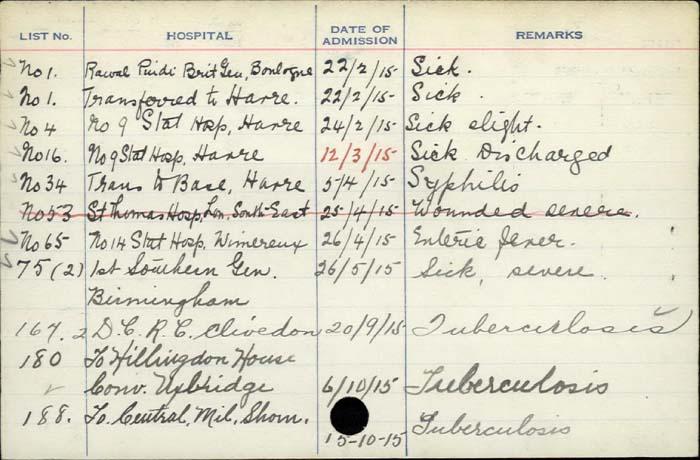 LIST No. HOSPITAL DATE OF ADMISSION REMARKS
No 1. Rawal Pindi Brit Gen, Boulogne 22/2/15 Sick.
No 1. Transferred to Havre. 22/2/15 Sick.
No 4 No 9 Stat Hosp, Havre 24/2/15 Sick slight.
No 16. No 9 Stat Hosp, Havre 12/3/15 Sick Discharged
No 34 Trans to Base, Havre 5/4/15 Syphilis
No 53 St Thomas Hosp, Lon, South-East 25/4/15 Wounded severe.
No 65 No 14 Stat Hosp. Wimereux 26/4/15 Enteric Fever.
75 (2) 1st Southern Gen. 26/5/15 Sick, severe
Birmingham
167. 2 D. C. R. C. Clivedon 20/9/15 Tuberculosis
180 To Hillingdon House
Conv. Uxbridge 6/10/15 Tuberculosis
188. To Central, Mil, Shorn. Tuberculosis
15-10-15